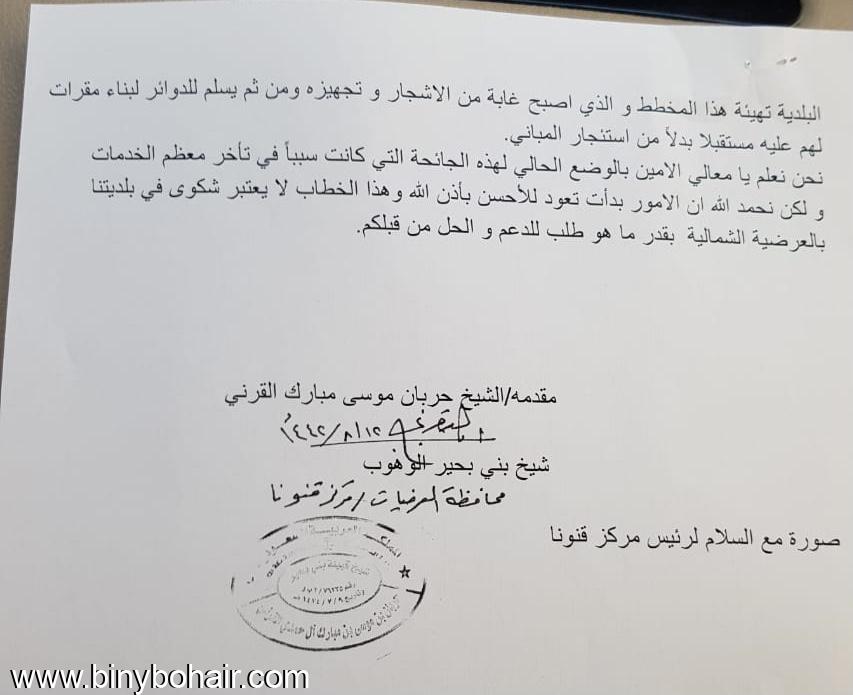 البلدية تهيئة هذا المخطط و الذي اصبح غابة من الاشجار و تجهيزه ومن ثم يسلم للدوائر لبناء مقرات
لهم عليه مستقبلا بدلاً من استئجار المباني.
نحن نعلم يا معالي الامين بالوضع الحالي لهذه الجائحة التي كانت سبباً في تأخر معظم الخدمات
و لكن نحمد الله ان الامور بدأت تعود للأحسن بأذن الله وهذا الخطاب لا يعتبر شكوى في بلديتنا
بالعرضية الشمالية بقدر ما هو طلب للدعم و الحل من قبلكم.
مقدمه/الشيخ حربان موسى مبارك القرني
١٤٤٢/٨/١٢
شيخ بني بحير الوهوب
محافظة العرضيات / مركز قنونا
صورة مع السلام لرئيس مركز قنونا
www.binybohair.com